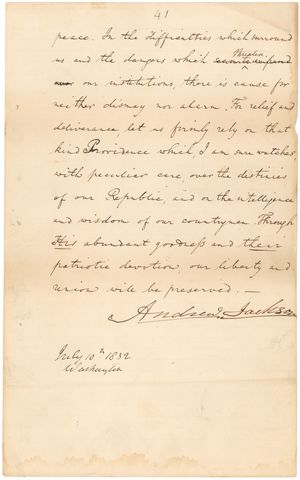 41
peace. In the difficulties which surround
us and the dangers which threaten
our institutions, there is cause for
neither dismay nor alarm. For relief and
deliverance let us firmly rely on that
kind Providence which I am sure watches
with peculiar care over the destinies
of our Republic, and on the intelligence
and wisdom of our countrymen. Through
His abundant goodness and their
patriotic devotion, our liberty and
Union will be preserved. —
Andrew Jackson
July 10th 1832
Washington